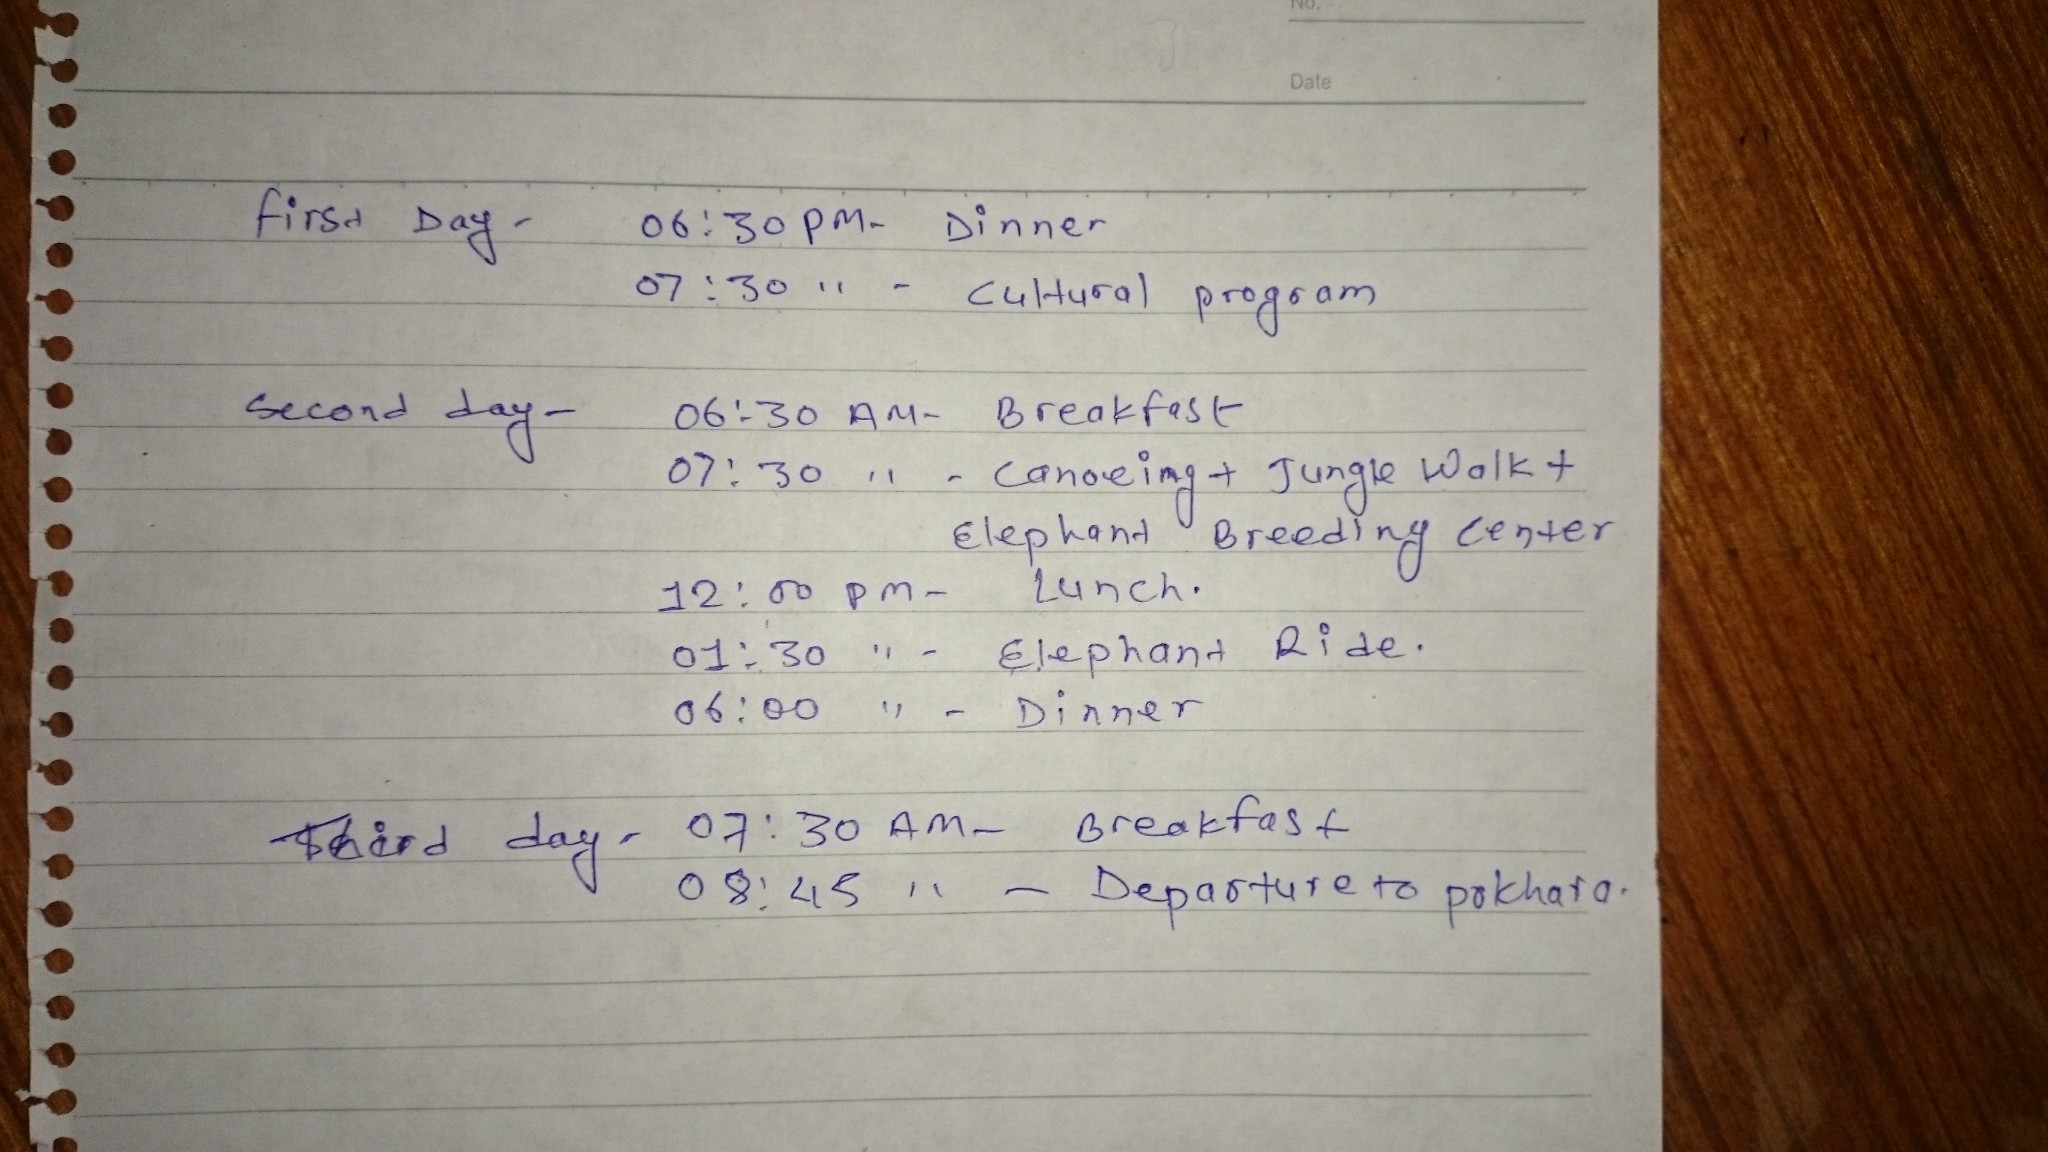 No.
Date
first Day - 06:30 PM - Dinner
07:30 " - Cultural program
Second day - 06:30 AM - Breakfast
07:30 " - Canoeing + Jungle Walk +
Elephant Breeding Center
12:00 pm - Lunch.
01:30 " - Elephant Ride.
06:00 " - Dinner
Third day - 07:30 AM - Breakfast
08:45 " - Departure to pokhara.